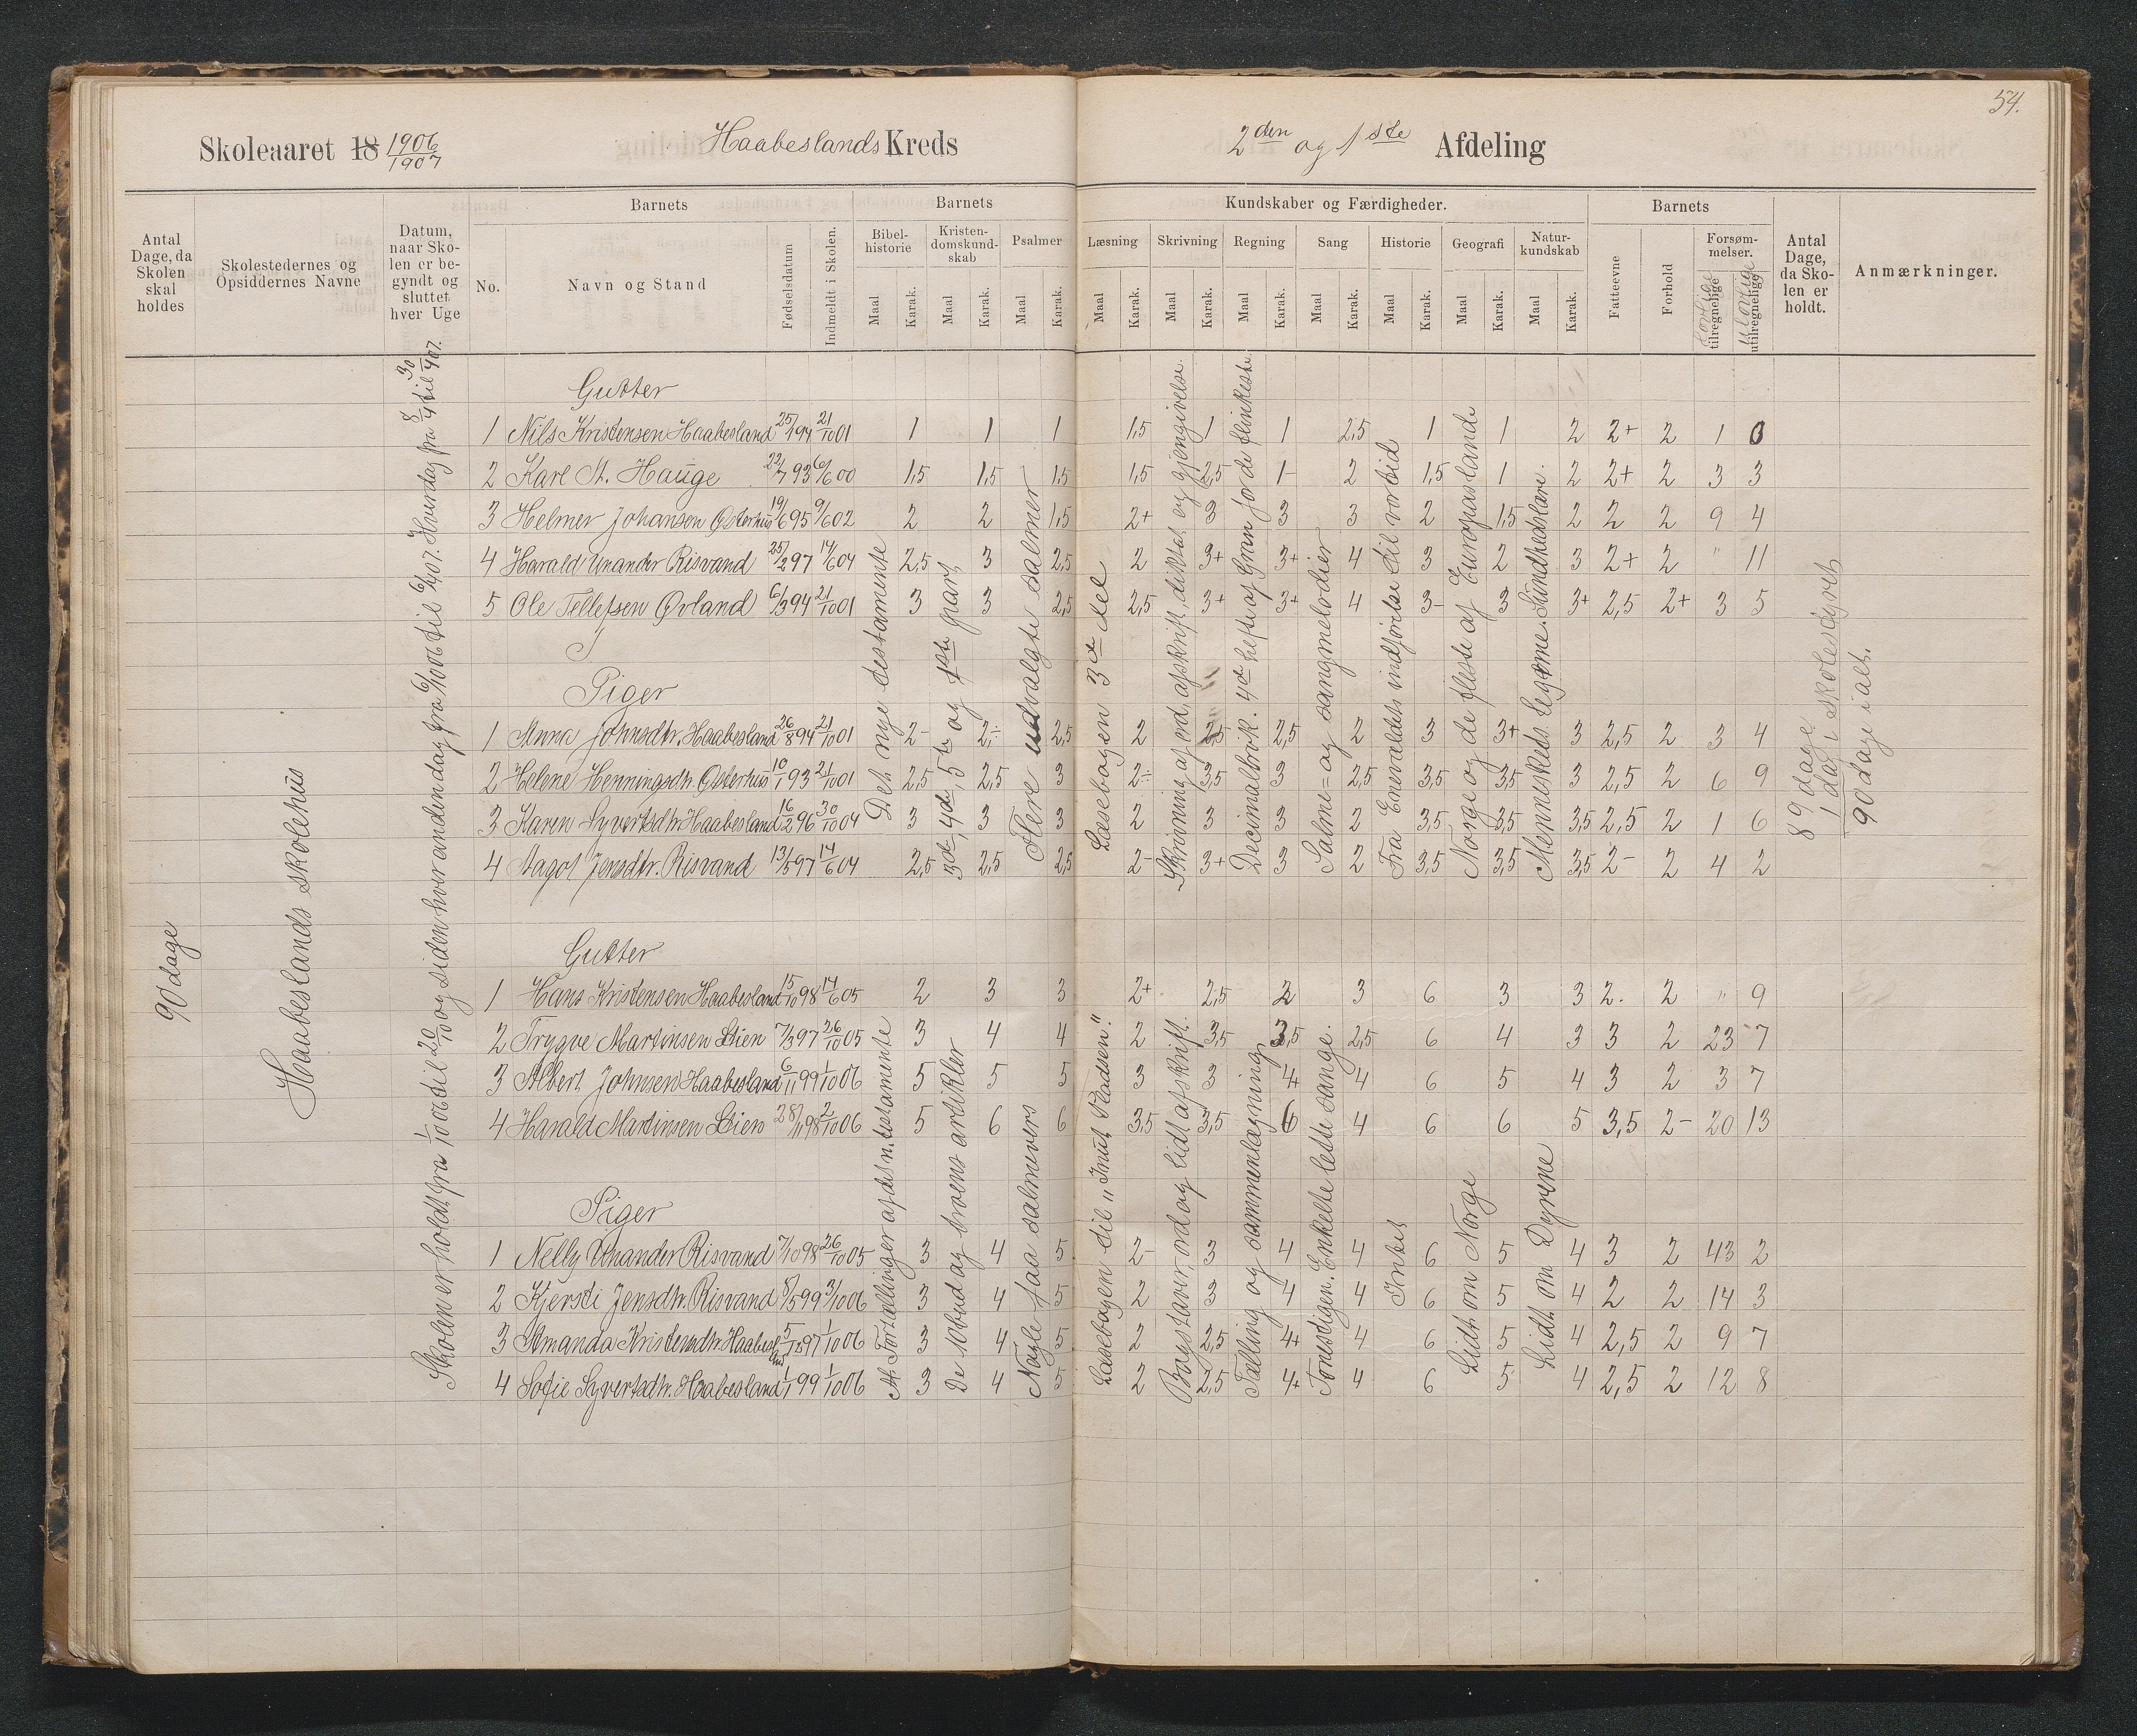 54.
Skoleaaret 18 1906/1907 Haabeslands Kreds 2den og 1ste Afdeling
Antal Dage, da Skolen skal holdes
Skolestedernes og Opsiddernes Navne
Datum, naar Skolen er begyndt og sluttet hver Uge
Barnets
No. Navn og Stand Fødselsdatum Indmeldt i Skolen.
Barnets Kundskaber og Færdigheder.
Bibelhistorie Maal Karak.
Kristendomskundskab Maal Karak.
Psalmer Maal Karak.
Læsning Maal Karak.
Skrivning Maal Karak.
Regning Maal Karak.
Sang Maal Karak.
Historie Maal Karak.
Geografi Maal Karak.
Naturkundskab Maal Karak.
Barnets
Fatteevne Forhold Forsømmelser. Lovlige tilregnelige Ulovlige utilregnelige
Antal Dage, da Skolen er holdt.
Anmærkninger.
90 dage
Haabeslands skolehus
Skolen er holdt fra 1/10 06 til 20/10 og siden hver anden dag fra 6/10 06 til 6/4 07. Hverdag fra 8/4 til 30/4 07.
Gutter
1 Nils Kristensen Haabesland 25/1 94 21/10 01 1 1 1 1,5 1 1 2,5 1 1 2 2+ 2 1 0
2 Karl St. Hauge 22/7 93 6/6 00 1,5 1,5 1,5 1,5 2,5 1- 2 1,5 1 2 2+ 2 3 3
3 Helmer Johansen Østerhus 19/6 95 9/6 02 2 2 1,5 2+ 3 3 3 2 1,5 2 2 2 9 4
4 Harald Unander Risvand 25/2 97 14/6 04 2,5 3 2,5 2 3+ 3+ 4 3 2 3 2+ 2 " 11
5 Ole Tellefsen Øvland 6/3 94 21/10 01 3 3 2,5 2,5 3+ 3+ 4 3- 3 3+ 2,5 2+ 3 5
Piger
1 Anna Johnsdtr. Haabesland 26/8 94 21/10 01 2- 2÷ 2,5 2 2,5 2,5 2 3 3+ 3 2,5 2 3 4
2 Helene Henningsdtr. Østerhus 10/1 93 21/10 01 2,5 2,5 3 2÷ 3,5 3 2,5 3,5 3,5 3 2,5 2 6 9
3 Karen Syvertsdtr. Haabesland 16/2 96 30/10 04 3 3 3 2 3 3 2 3,5 3,5 3,5 2,5 2 1 6
4 Aagot Jensdtr. Risvand 13/5 97 14/6 04 2,5 2,5 2,5 2- 3+ 3 2 3,5 3,5 3,5 2- 2 4 2
Det nye testamente
3de, 4de, 5te og 1ste part
Flere udvalgte salmer
Læsebogen 3de del
Skrivning af ord, afskrift, diktat og gjengivelse.
Decimalbrøk. 4de hefte af Gran for de flinkeste
Salme= og sangmelodier
Fra Enevældets indførelse til vor tid
Norge og de fleste af Europas lande
Menneskets legeme. Sundhedslære.
89 dage
1 dag i skolestyret
90 dage i alt.
Gutter
1 Hans Kristensen Haabesland 15/10 98 14/6 05 2 3 3 2+ 2,5 2 3 6 3 3 2. 2 " 9
2 Trygve Martinsen Stien 7/3 97 26/10 05 3 4 4 2 3,5 3,5 2,5 6 4 3 3 2 23 7
3 Albert Johnsen Haabesland 6/11 99 1/10 06 5 5 5 3 3 4 4 6 5 4 3 2 3 7
4 Harald Martinsen Stien 28/11 98 2/10 06 5 6 6 3,5 3,5 6 4 6 6 5 3,5 2- 20 13
Piger
1 Nelly Unander Risvand 7/10 98 26/10 05 3 4 5 2- 3 4 4 6 5 4 3 2 43 2
2 Kjersti Jensdtr. Risvand 8/5 99 3/10 06 3 4 5 2 3 4 4 6 5 4 2 2 14 3
3 Amanda Kristensdtr. Haabesland 97 1/10 06 3 4 5 2 2,5 4+ 4 6 5 4 2,5 2 9 7
4 Sofie Syvertsdtr. Haabesland 1/1 99 1/10 06 3 4 5 2 2,5 4+ 4 6 5 4 2,5 2 12 8
Fortællinger af det n. testamente
De 10 bud og troens artikler
Nogle faa salmevers
Læsebogen til "Knut Pladsen."
Bogstaver, ord og lidt afskrift.
Tælling og sammenlægning
Tonestigen. Enkelte lette sange.
Intet
Lidt om Norge
Lidt om Dyrene